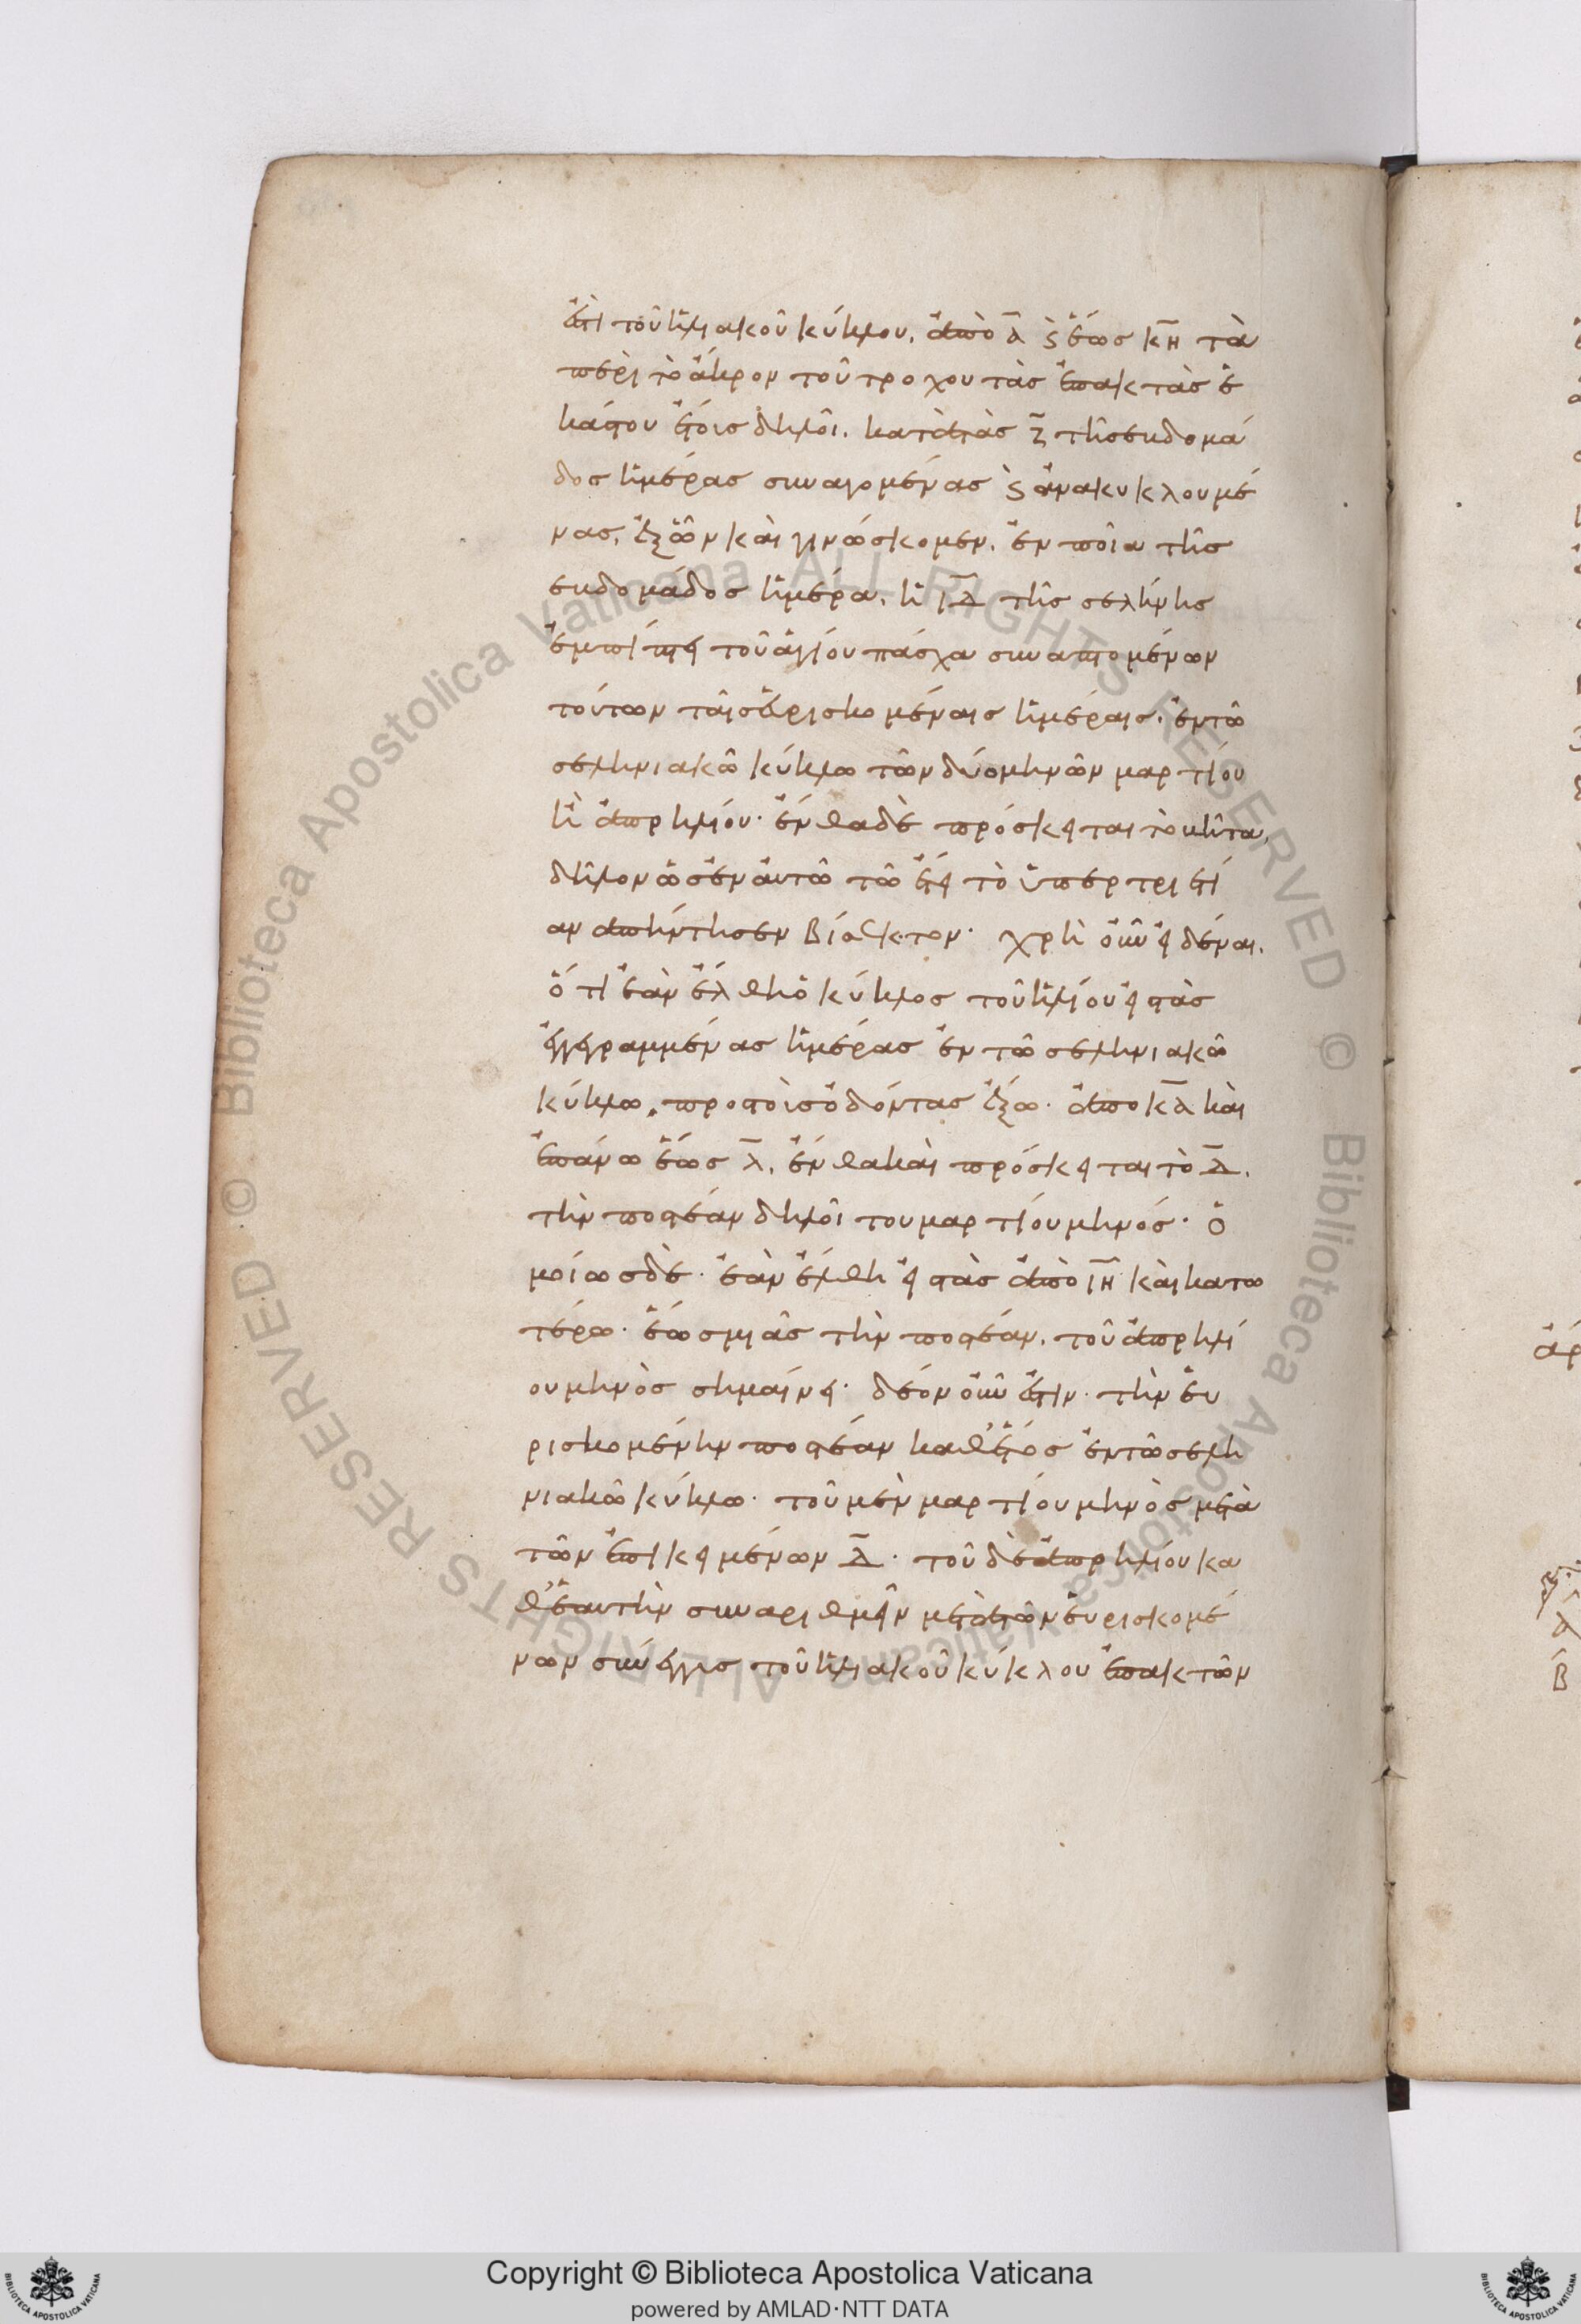 ἔτη τοῦ ἡλιακοῦ κύκλου. ἀπὸ α̅ ϛ ἕως κ̅η̅ τὰ
περὶ τὸ ἄκρον τοῦ τροχου τὰς ἐπακτὰς ἑ
κάστου ἔτους δηλοῖ. κατὰ τὰς ζ̅ τῆς ευδομά
δος ἡμέρας συναγομένας ϛ ἀνακυκλουμέ
νας, ἐξ ὧν καὶ γινώσκομεν. ἐν ποία τῆς
ευδομάδος ἡμέρα. ἡ ι̅δ̅ τῆς σελήνης
ἐμπίπτει τοῦ ἁγίου πάσχα συναπτομένων
τούτων ταῖς εὑρισκομέναις ἡμέραις. ἐν τῶ
σεληνιακῶ κύκλω τῶν δύο μηνῶν μαρτίου
ἢ ἀπρηλίου. ἔνθα δὲ πρόσκειται τὸ
δῆλον ὡς ἐν αὐτῶ τῶ ἔτει τὸ ὑπερ
χρὴ οὖν εἰδέναι.
ὅτι ἐὰν ἔλθη ὁ κύκλος τοῦ ἡλίου εἰς τὰς
ἐγγεγραμμένας ἡμέρας ἐν τῶ σεληνιακῶ
κύκλω, πρὸς τοῖς ὀδόντας ἔξω. ἀπο κ̅α̅ καὶ
ἐπάνω ἕως λ̅, ἔνθα καὶ πρόσκειται τὸ δ̅.
τὴν ποστέαν δηλοῖ του μαρτίου μηνός. ὁ
μοίως δὲ. ἐὰν ἔλθη εἰς τὰς ἀπὸ ι̅η̅ καὶ κατω
τέρω. ἕως μιᾶς τὴν ποστέαν. τοῦ ἀπρηλί
ου μηνὸς σημαίνει. δέον οὖν ἔστιν. τὴν εὑ
ρισκομένην ποστέαν καθ' ἔτος ἐν τῶ σελη
νιακῶ κύκλω. τοῦ μὲν μαρτίου μηνὸς μετὰ
τῶν ἐπικειμένων δ̅. τοῦ δὲ ἀπρηλίου κα
θ' ἑαυτὴν συναριθμεῖν μετὰ τῶν εὑρισκομέ
νων συνέγγις τοῦ ἡλιακοῦ κύκλου ἐπακτῶν